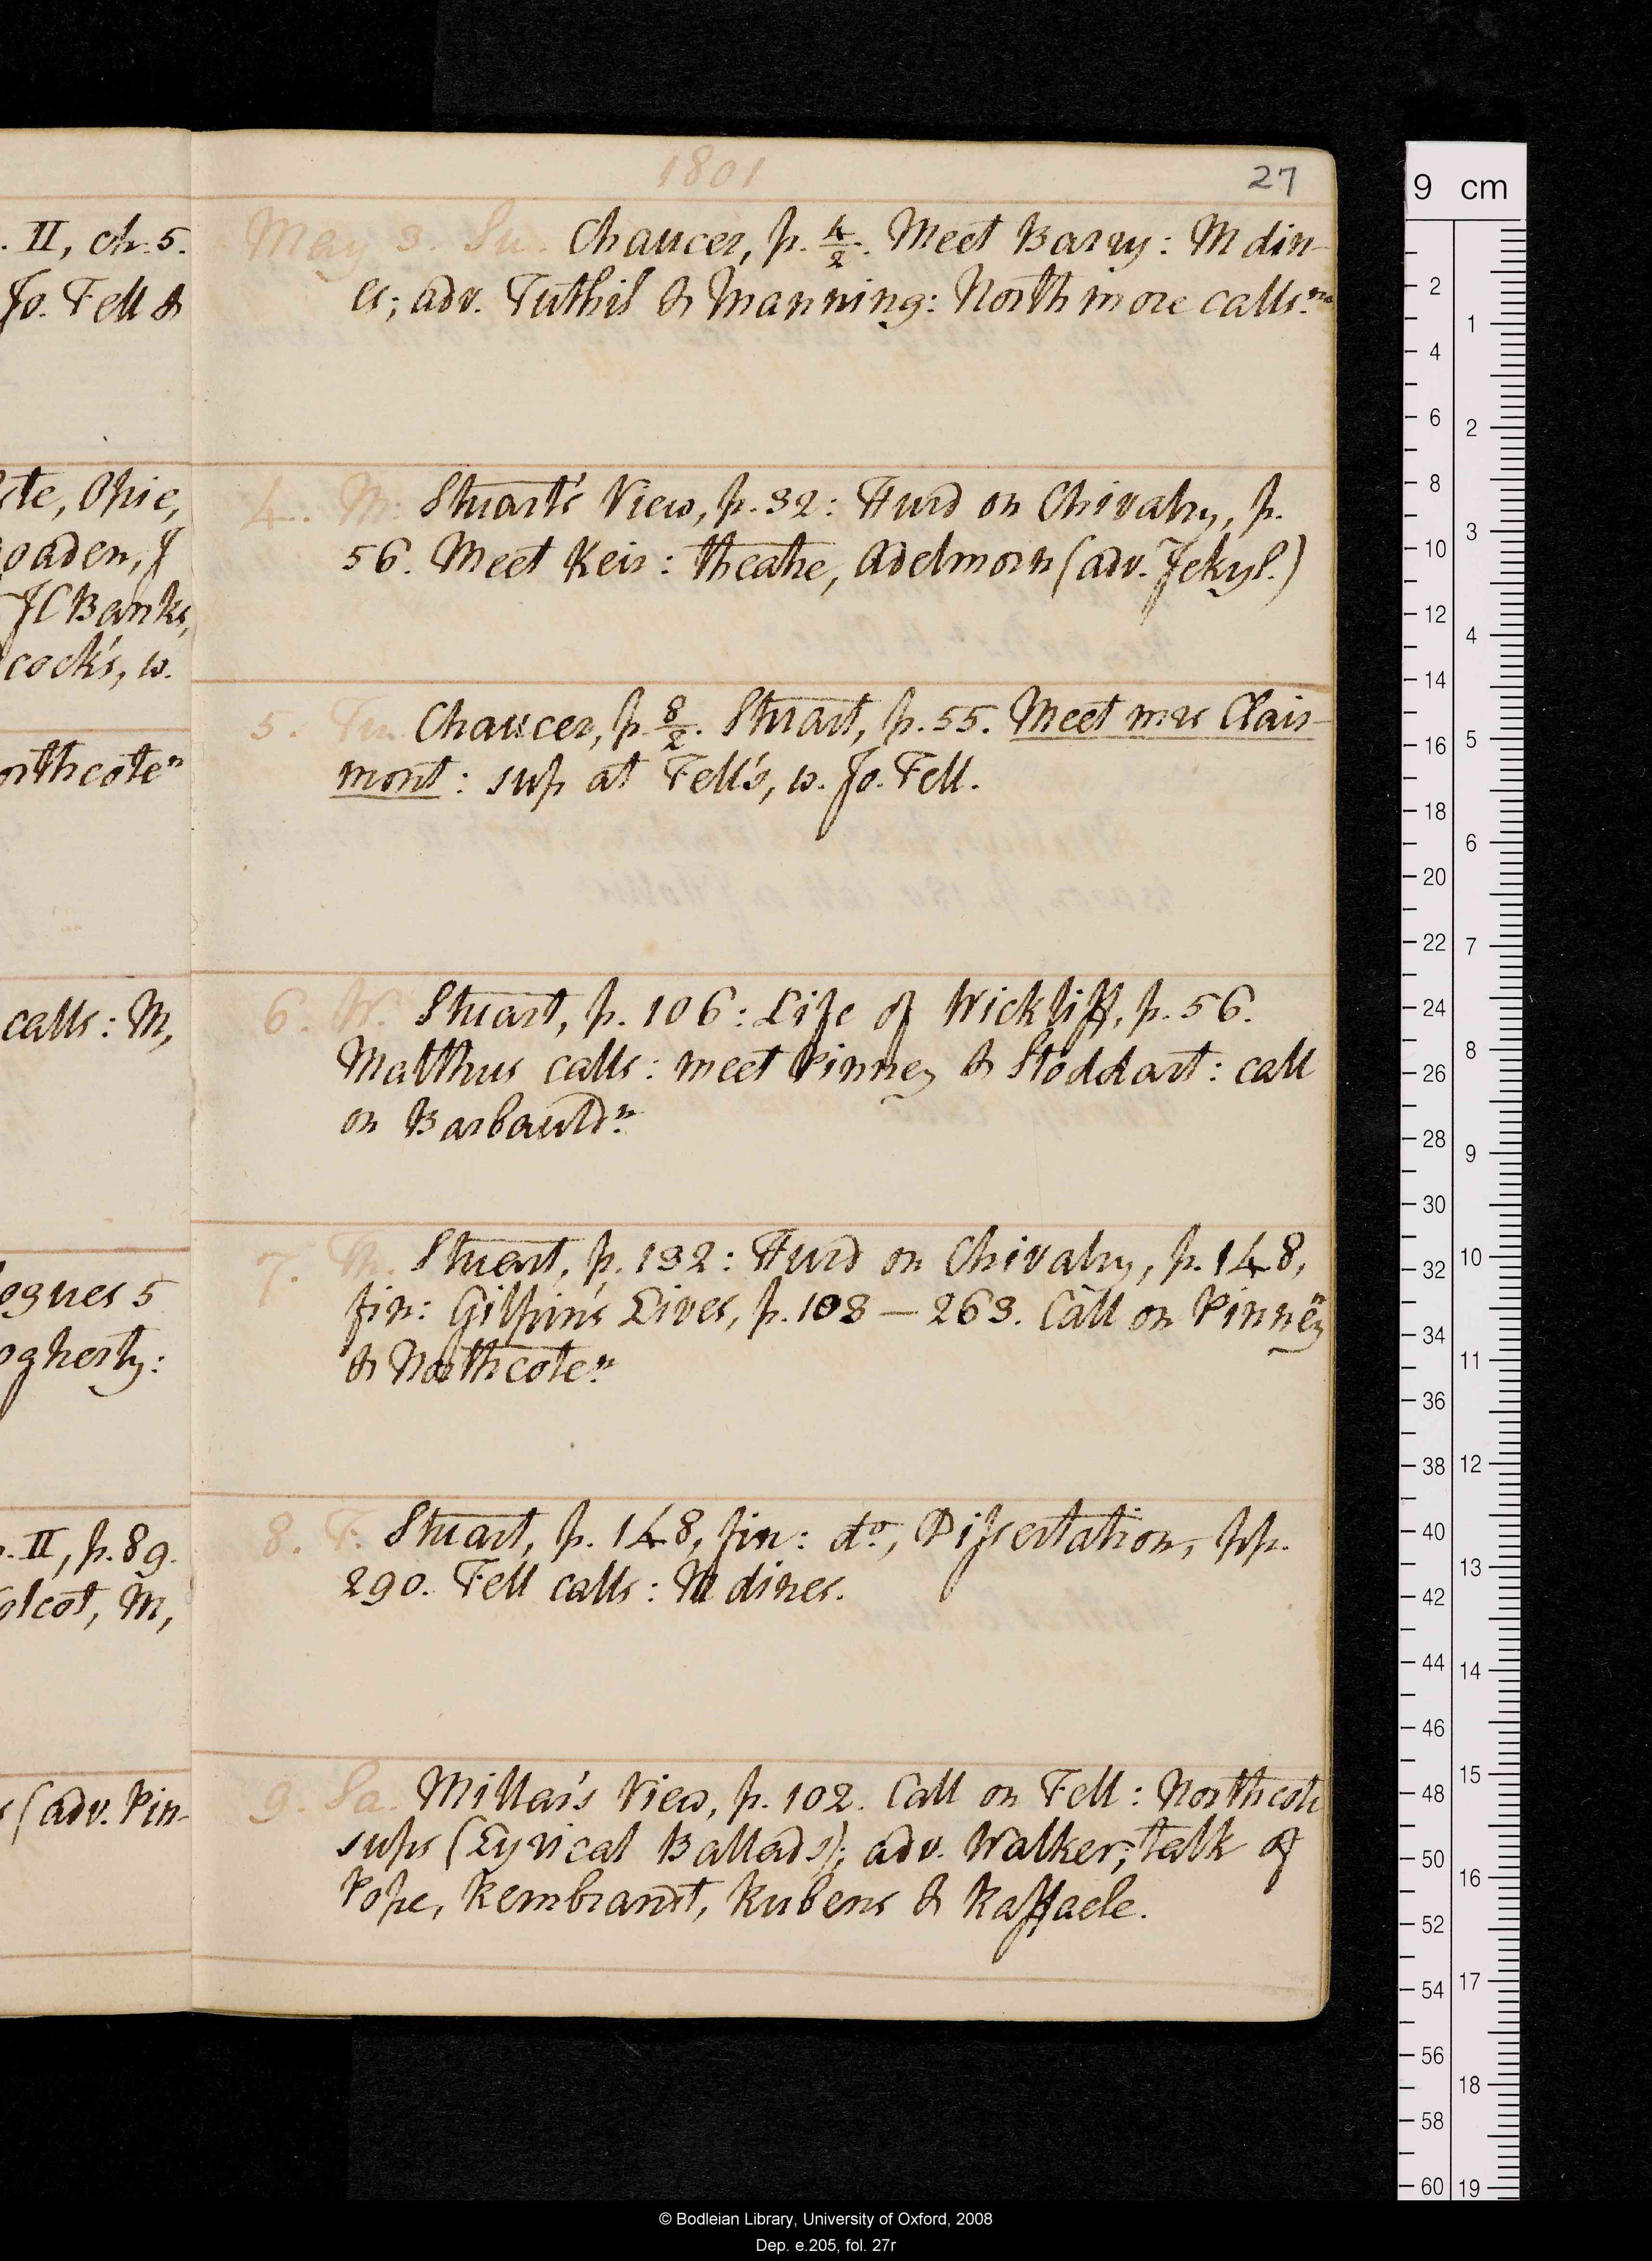 1801
27
. II, ch. 5.
Jo. Fell &
Opie,
J C Banks,
cock's, w.
orthcote n
calls: M,
ogues 5
ogherty:
. II, p. 89.
olcot, M,
(adv. Pin-
May 3. Su. Chaucer, p. 4/2. Meet Barry: M din-
es; adv. Tuthil & Manning: Northmore calls. na
4. M. Stuart's View, p. 32: Hurd on Chivalry, p.
56. Meet Keir: theatre, Adelmorn (adv. Jekyl.)
5. Tu. Chaucer, p. 8/2. Stuart, p. 55. Meet mrs Clair-
mont: sup at Fell's, w. Jo. Fell.
6. W. Stuart, p. 106: Life of Wickliff, p. 56.
Malthus calls: meet Pinney & Stoddart: call
on Barbauld n.
7. Th. Stuart, p. 132: Hurd on Chivalry, p. 148,
fin: Gilpin's Lives, p. 108 — 263. Call on Pinney n
& Northcote n.
8. F. Stuart, p. 148, fin: do, Dissertation, pp.
290. Fell calls: M dines.
9. Sa. Millar's View, p. 102. Call on Fell: Northcote
sups (Lyrical Ballads); adv. Walker; talk of
Pope, Rembrandt, Rubens & Raffaele.
9 cm
2 4 6 8 10 12 14 16 18 20 22 24 26 28 30 32 34 36 38 40 42 44 46 48 50 52 54 56 58 60
1 2 3 4 5 6 7 8 9 10 11 12 13 14 15 16 17 18 19
© Bodleian Library, University of Oxford, 2008
Dep. e.205, fol. 27r